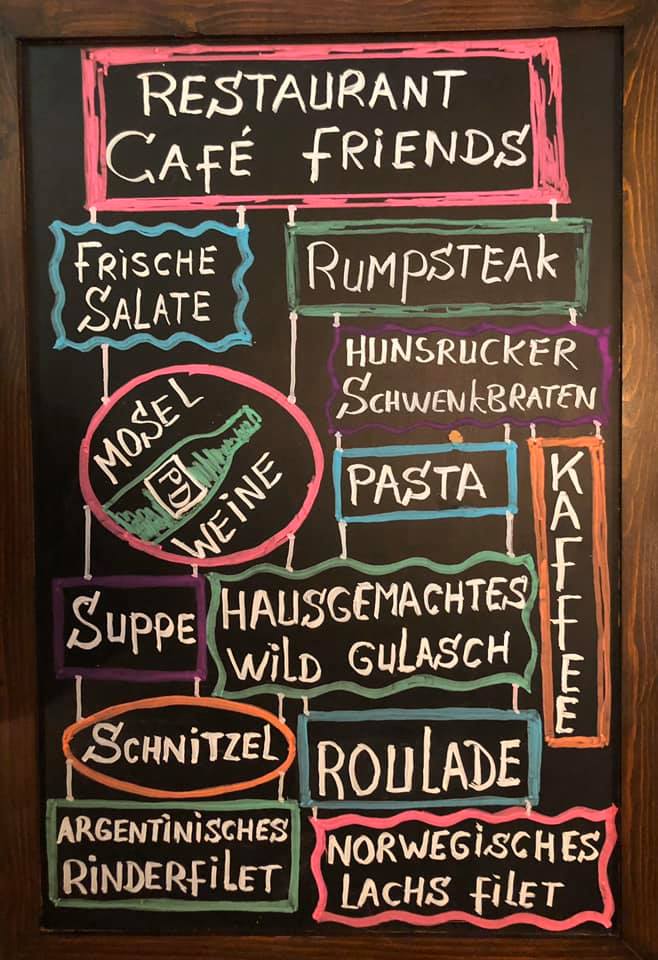 RESTAURANT
CAFÉ FRIENDS
FRISCHE
SALATE
RUMPSTEAK
HUNSRUCKER
SCHWENKBRATEN
MOSEL
PD
WEINE
PASTA
KAFFEE
SUPPE
HAUSGEMACHTES
WILD GULASCH
SCHNITZEL
ROULADE
ARGENTINISCHES
RINDERFILET
NORWEGISCHES
LACHS FILET